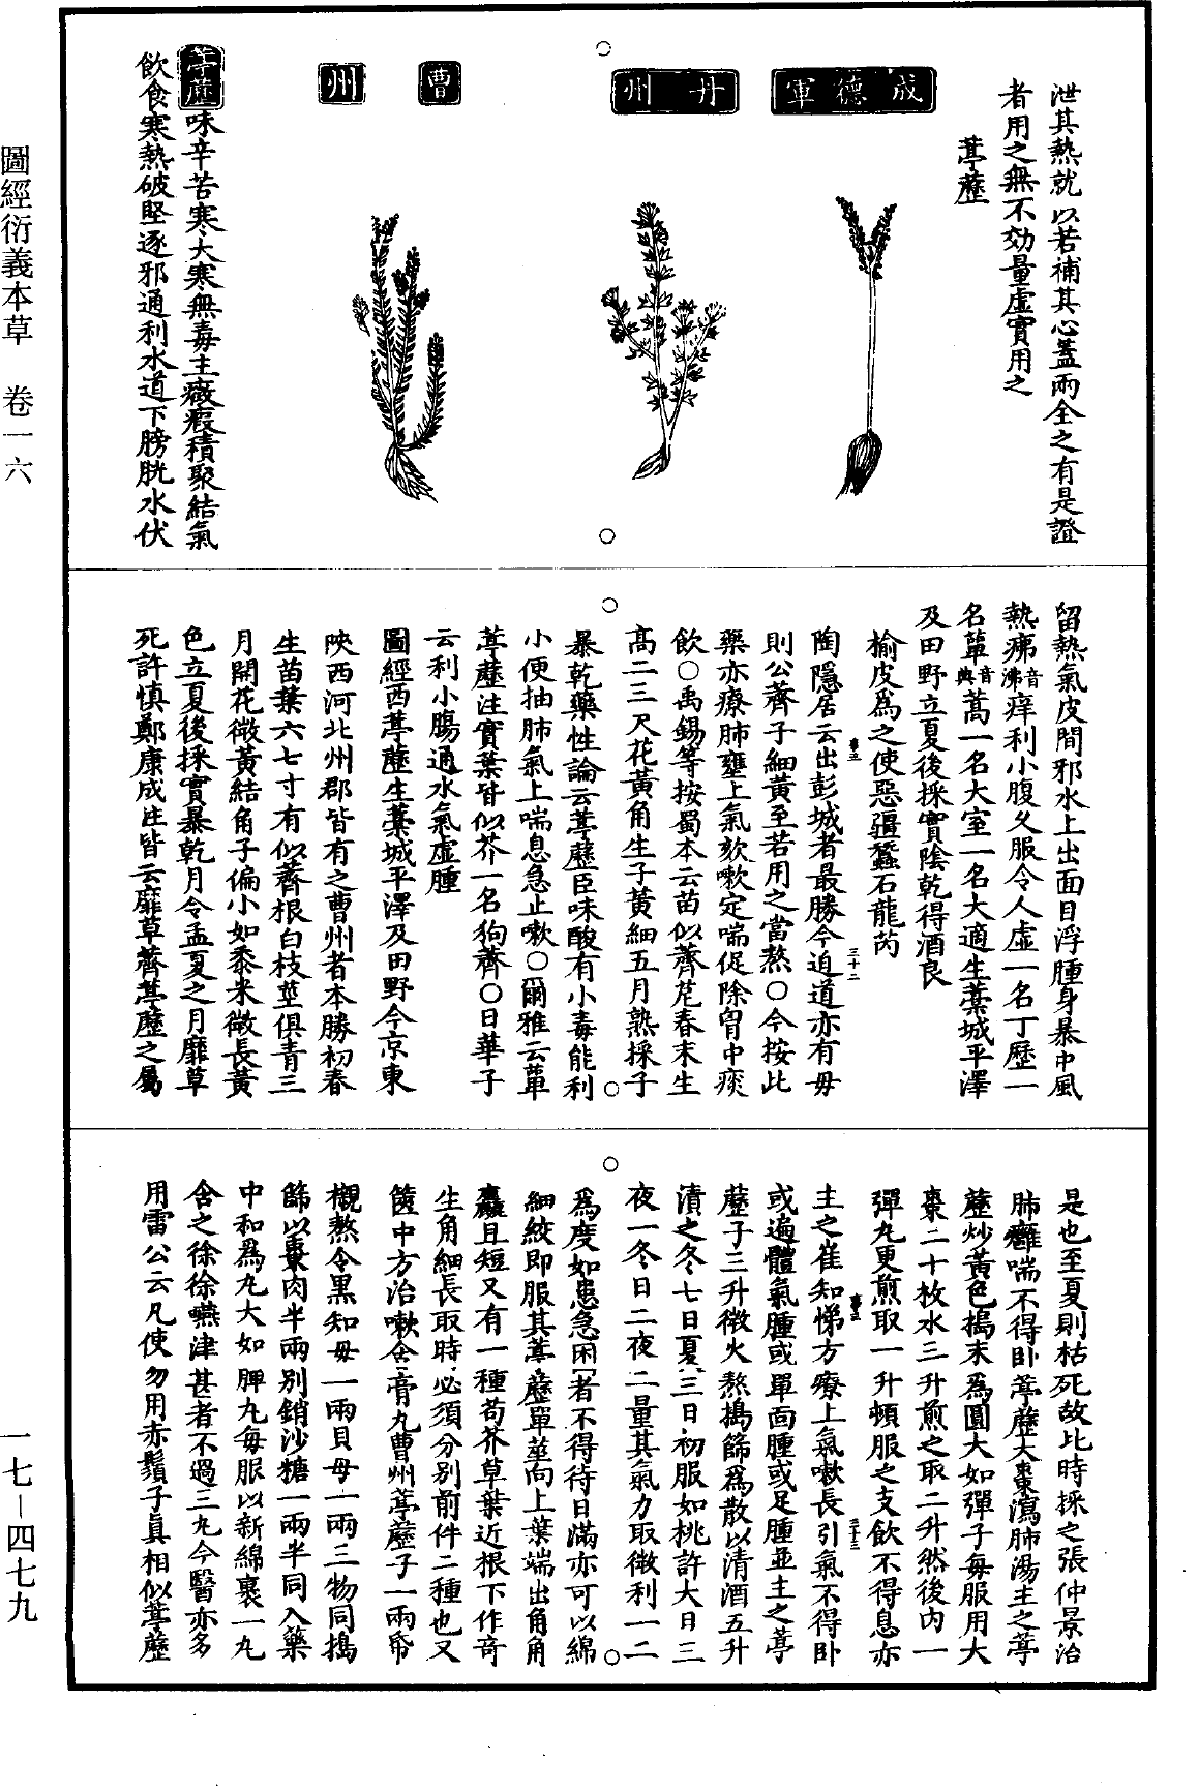 圖經衍義本草　卷一六
一七－四七九
泄其熱就以苦補其心蓋兩全之有是證
者用之無不効量虛實用之
葶藶
成德軍
丹州
曹州
葶藶味辛苦寒大寒無毒主癥瘕積聚結氣
飲食寒熱破堅逐邪通利水道下膀胱水伏
留熱氣皮間邪水上出面目浮腫身暴中風
熱疿音沸痒利小腹久服令人虛一名丁歷一
名蕇音典蒿一名大室一名大適生藁城平澤
及田野立夏後採實陰乾得酒良
榆皮為之使惡殭蠶石龍芮
陶隱居云出彭城者最勝今近道亦有母
則公薺子細黃至苦用之當熬○今按此
藥亦療肺壅上氣欬嗽定喘促除胷中痰
飲○禹錫等按蜀本云苗似薺苨春末生
高二三尺花黃角生子黃細五月熟採子
暴乾藥性論云葶藶臣味酸有小毒能利
小便抽肺氣上喘息急止嗽○爾雅云蕇
葶藶注實葉皆似芥一名狗薺○日華子
云利小腸通水氣虛腫
圖經西葶藶生藁城平澤及田野今京東
陝西河北州郡皆有之曹州者本勝初春
生苗葉六七寸有似薺根白枝莖俱青三
月開花微黃結角子偏小如黍米微長黃
色立夏後採實暴乾月令孟夏之月靡草
死許慎鄭康成注皆云靡草薺葶藶之屬
是也至夏則枯死故此時採之張仲景治
肺癰喘不得臥葶藶大棗瀉肺湯主之葶
藶炒黃色搗末為圓大如彈子每服用大
棗二十枚水三升煎之取二升然後內一
彈丸更煎取一升頓服之支飲不得息亦
主之崔知悌方療上氣嗽長引氣不得臥
或遍體氣腫或單面腫或足腫並主之葶
藶子三升微火熬搗篩為散以清酒五升
漬之冬七日夏三日初服如桃許大日三
夜一冬日二夜二量其氣力取微利一二
為度如患急困者不得待日滿亦可以綿
細絞即服其葶藶單莖向上葉端出角角
麤且短又有一種苟芥草葉近根下作奇
生角細長取時必須分別前件二種也又
篋中方治嗽含膏丸曹州葶藶子一兩帋
襯熬令黑知母一兩貝母一兩三物同搗
篩以棗肉半兩別銷沙糖一兩半同入藥
中和為丸大如脾丸每服以新綿裹一丸
含之徐徐嚥津甚者不過三丸今醫亦多
用雷公云凡使勿用赤鬚子真相似葶藶